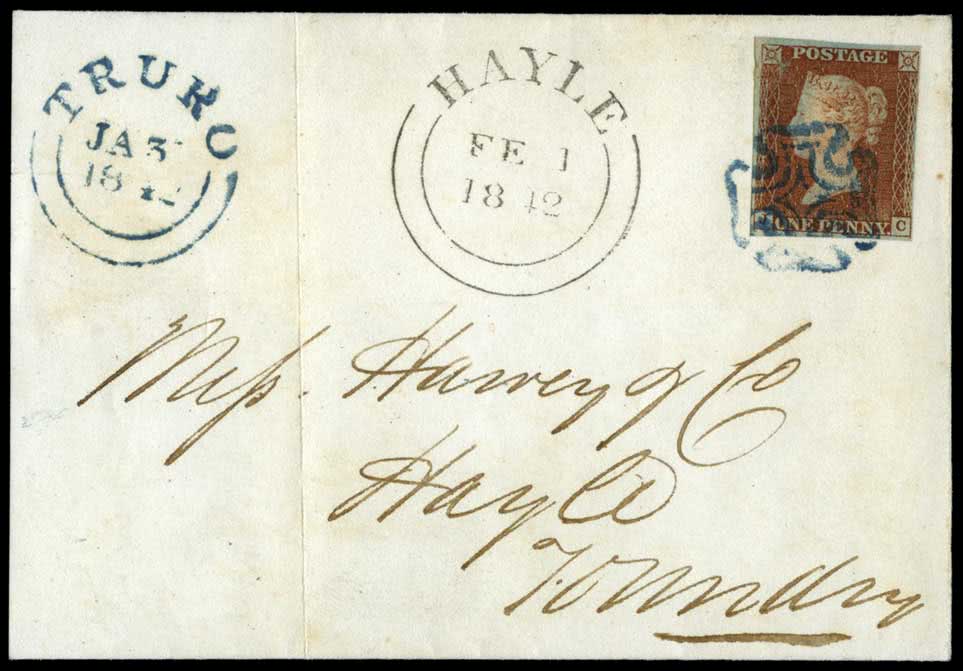 TRURO
JA 31
1842
HAYLE
FE 1
1842
POSTAGE
ONE PENNY
C
Mess. Harvey & Co
Hayle
Foundry